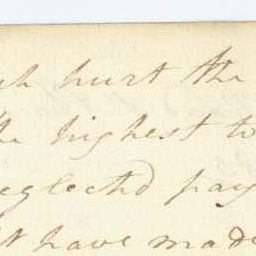 hurt the
highest to
neglectd pay
have made